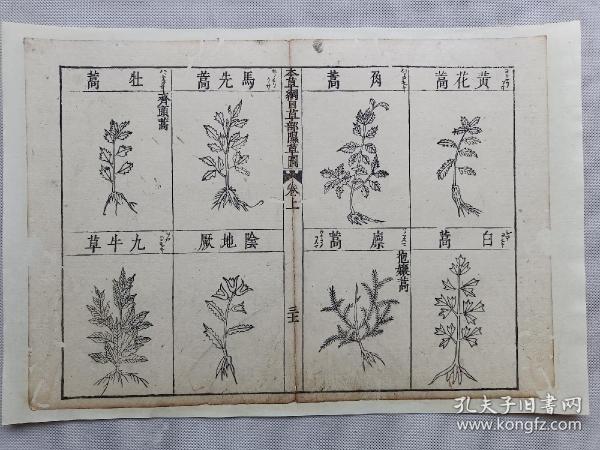 黃花蒿
角蒿
白蒿
廩蒿
抱孃蒿
本草綱目草部隰草圖
卷上
馬先蒿
牡蒿
齊頭蒿
陰地厥
九牛草
孔夫子旧書网
www.kongfz.com